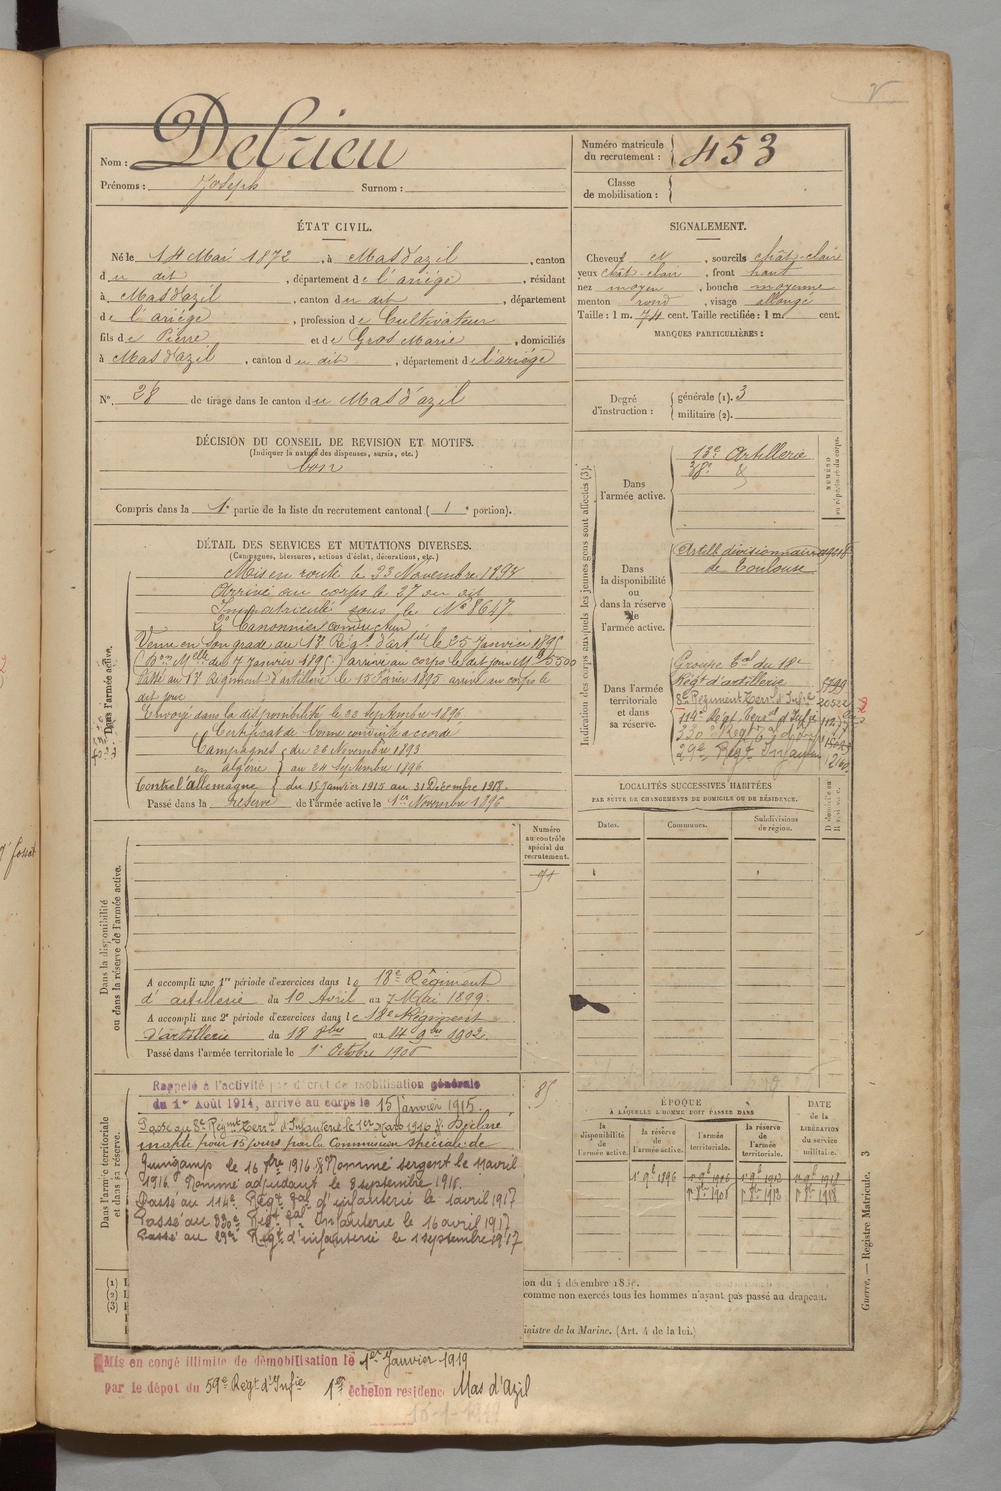 Nom : Delrieu
Prénoms : Joseph Surnom :
Numéro matricule du recrutement : 453
Classe de mobilisation :
ÉTAT CIVIL.
Né le 14 Mai 1872, à Mas d'azil, canton
du dit, département de l'ariège, résidant
à Mas d'azil, canton du dit, département
de l'ariège, profession de Cultivateur
fils de Pierre et de Gros Marie, domiciliés
à Mas d'azil, canton du dit, département de l'ariège
N° 28 de tirage dans le canton du Mas d'azil
SIGNALEMENT.
Cheveux et, sourcils chât-clair
yeux chât-clair, front haut
nez moyen, bouche moyenne
menton rond, visage allongé
Taille : 1 m. 74 cent. Taille rectifiée : 1 m. cent.
MARQUES PARTICULIÈRES :
Degré d'instruction : générale (1). 3
militaire (2).
DÉCISION DU CONSEIL DE REVISION ET MOTIFS.
(Indiquer la nature des dispenses, sursis, etc.)
bon
Compris dans la 1e partie de la liste du recrutement cantonal (1e portion).
DÉTAIL DES SERVICES ET MUTATIONS DIVERSES.
(Campagnes, blessures, actions d'éclat, décorations, etc.)
Dans l'armée active.
Mis en route le 23 Novembre 1893
Arrivé au corps le 27 du dit
Immatriculé sous le N° 8647
2e Canonnier conducteur
Venu en son grade au 18 Régt d'artie le 25 Janvier 1895
du 7 Janvier 1895) arrivé au corps le dit jour Mle 5500
Passé au 13 Régiment d'artillerie le 15 Février 1895 arrivé au corps le
dit jour
Envoyé dans la disponibilité le 22 Septembre 1896
Certificat de bonne conduite accordé
Campagnes du 26 Novembre 1893
en algérie au 24 Septembre 1896
Contre l'allemagne du 15 janvier 1915 au 31 Décembre 1918.
Passé dans la réserve de l'armée active le 1er Novembre 1896
Indication des corps auxquels les jeunes gens sont affectés (3).
NUMÉRO au répertoire du corps.
Dans l'armée active.
13e Artillerie
18e d
Dans la disponibilité ou dans la réserve de l'armée active.
Artill divisionnaire
de Toulouse
Dans l'armée territoriale et dans sa réserve.
Groupe tal du 18e
Régt d'artillerie
8e Régiment Terral d'Infie
114e Régt Terral d'Infie
330e Régt
29e Régt Infanterie
LOCALITÉS SUCCESSIVES HABITÉES
PAR SUITE DE CHANGEMENTS DE DOMICILE OU DE RÉSIDENCE.
Dates. Communes. Subdivisions de région.
D domicile ou R résidence.
Numéro au contrôle spécial du recrutement.
94
Dans la disponibilité ou dans la réserve de l'armée active.
A accompli une 1re période d'exercices dans le 18e Régiment
d'artillerie du 10 Avril au 7 Mai 1899.
A accompli une 2e période d'exercices dans le 18e Régiment
d'artillerie du 18 8bre au 14 9bre 1902.
Passé dans l'armée territoriale le 1er Octobre 1906
Dans l'armée territoriale et dans sa réserve.
85
Rappelé à l'activité par décret de mobilisation générale
du 1er Août 1914, arrivé au corps le 15 Janvier 1915.
Passé au 8e Régmt Terral d'Infanterie le 1er Mars 1916. Déclaré
inapte pour 15 jours par la Commission spéciale de
Guingamp le 16 1916. Nommé sergent le 11 avril
1916 Nommé adjudant le 8 septembre 1916.
Passé au 114e Régt tal d'infanterie le 1 avril 1917
Passé au 330e Régt tal Infanterie le 16 avril 1917
Passé au 29e Régt d'infanterie le 1 septembre 1917
ÉPOQUE
À LAQUELLE L'HOMME DOIT PASSER DANS
la disponibilité de l'armée active.
la réserve de l'armée active.
l'armée territoriale.
la réserve de l'armée territoriale.
DATE de la LIBÉRATION du service militaire.
1er 9bre 1896
(1)
(2)
(3)
comme non exercés tous les hommes n'ayant pas passé au drapeau.
inistre de la Marine. (Art. 4 de la loi.)
Guerre. — Registre Matricule. 3
Mis en congé illimité de démobilisation le 1er Janvier 1919
par le dépôt du 59e Régt d'Infie 1er échelon résidence Mas d'Azil